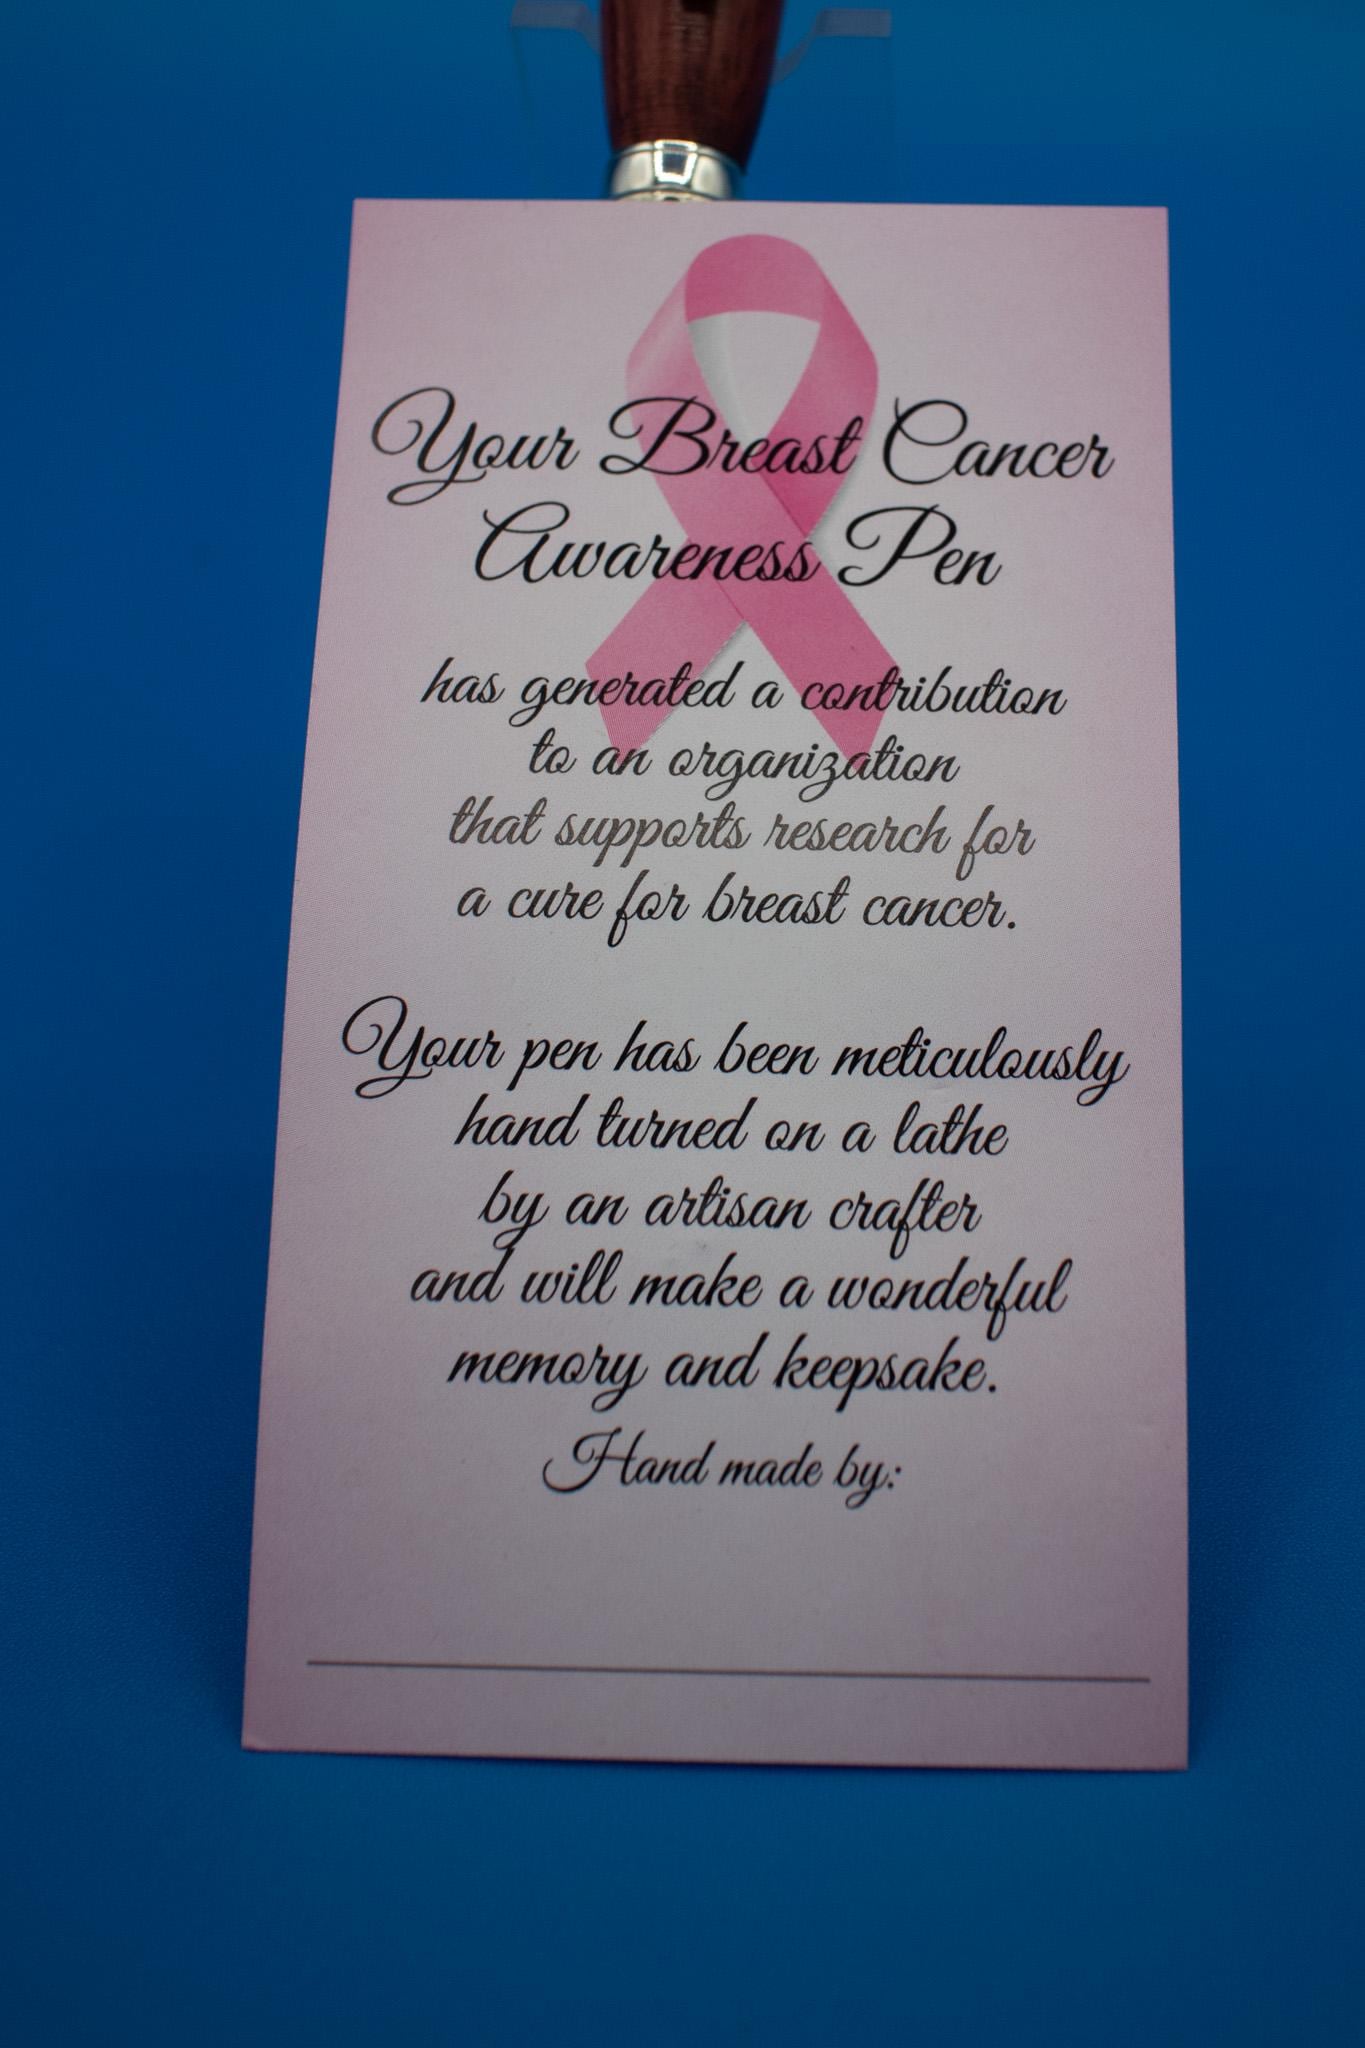 Your Breast Cancer
Awareness Pen
has generated a contribution
to an organization
that supports research for
a cure for breast cancer.
Your pen has been meticulously
hand turned on a lathe
by an artisan crafter
and will make a wonderful
memory and keepsake.
Hand made by: